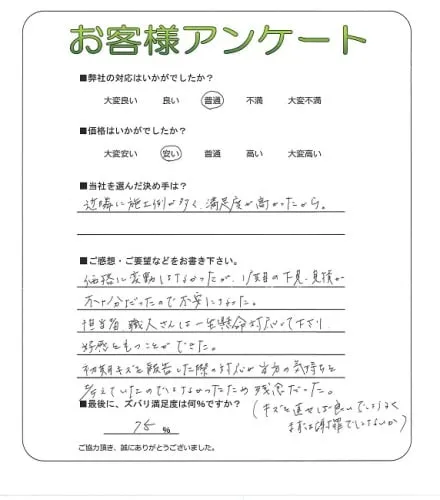 お客様アンケート
■弊社の対応はいかがでしたか?
大変良い 良い 普通 不満 大変不満
■価格はいかがでしたか?
大変安い 安い 普通 高い 大変高い
■当社を選んだ決め手は?
近隣に施工例が多く、満足度が高かったから。
■ご感想・ご要望などをお書き下さい。
価格に変動はなかったが、1度目の下見、見積が
不十分だったので不安になった。
担当者、職人さんは一生懸命対応して下さり、
好感をもつことができた。
初期キズを報告した際の対応が当方の気持ちを
考えていたものではなかったため残念だった。
■最後に、ズバリ満足度は何%ですか?
(キズを直せば良いでしょうなく
まずは謝罪でしょないか)
75 %
ご協力頂き、誠にありがとうございました。